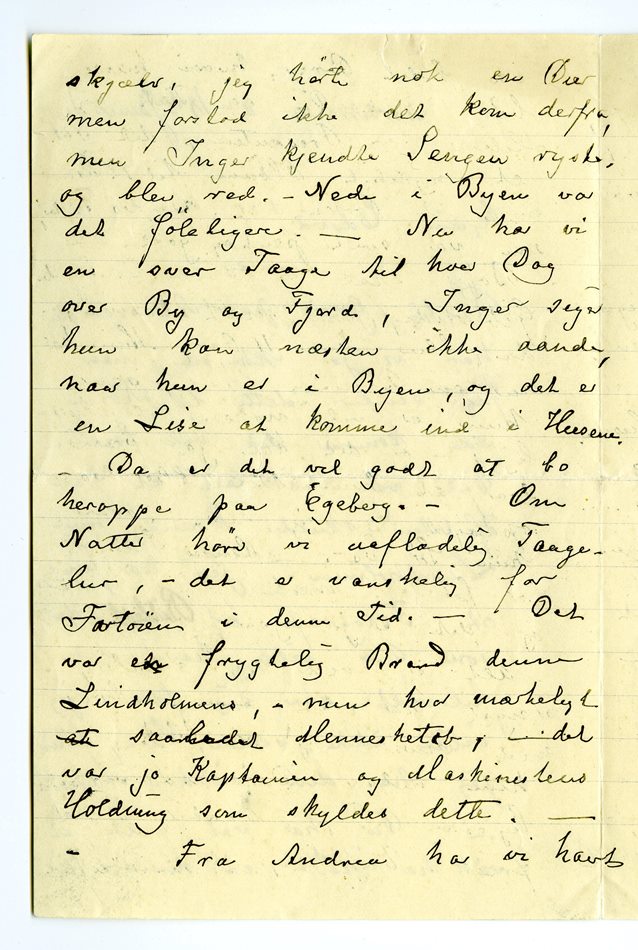 skjælv, jeg hørte nok en Dur
men forstod ikke det kom derfra,
men Inger kjendte Sengen ryste,
og blev ræd. – Nede i Byen var
det føleligere. — Nu har vi
en svær Taage til hver Dag
over By og Fjord, Inger siger
hun kan næsten ikke aande,
naar hun er i Byen, og det er
en Lise at komme ind i Husene.
– Da er det vel godt at bo
heroppe paa Egeberg. – Om
Natten hører vi uafladelig Taage-
lur, – det er vanskelig for
Fartøien i denne Tid. — Det
var en frygtelig Brand denne
Lindholmens, – men hvor mærkeligt
at saa lidet Mennesketab, — det
var jo Kaptainen og Maskinestens
Holdning som skyldes dette. —
– Fra Andrea har vi havt